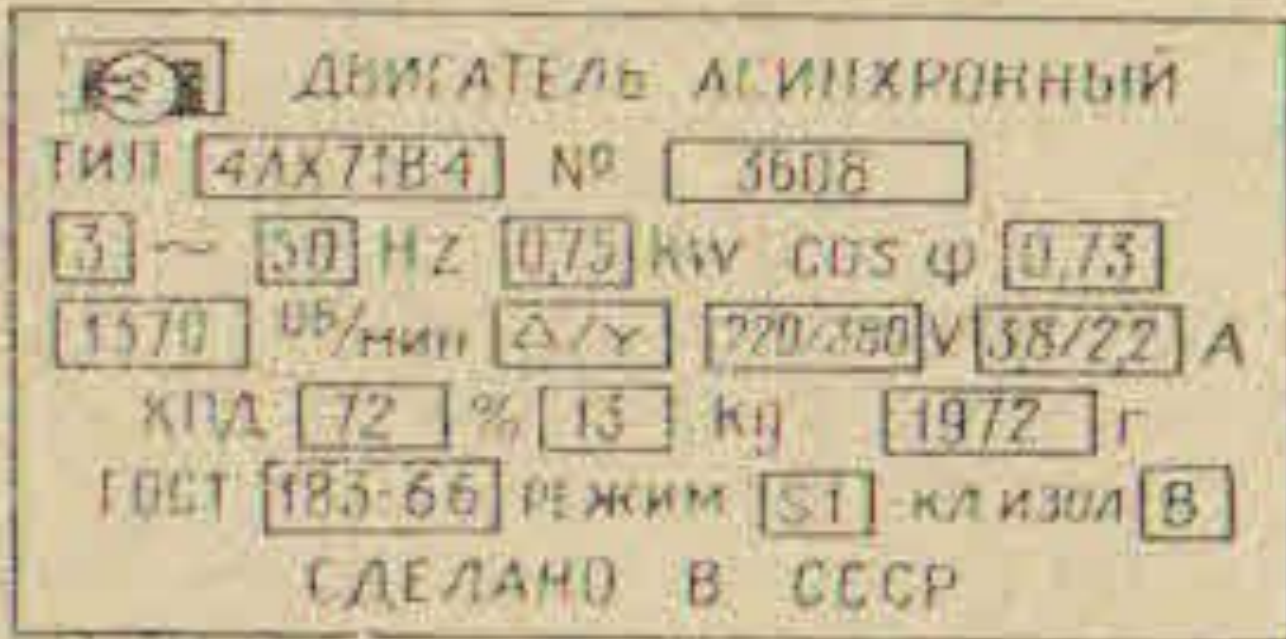 ДВИГАТЕЛЬ АСИНХРОННЫЙ
ТИП 4АХ71В4 № 3608
3 ~ 50 HZ 0,75 kW cos φ 0,73
1370 об/мин Δ/Y 220/380 V 3,8/2,2 A
КПД 72 % 15 кg 1972 г
ГОСТ 183-66 РЕЖИМ S1 КЛ ИЗОЛ В
СДЕЛАНО В СССР